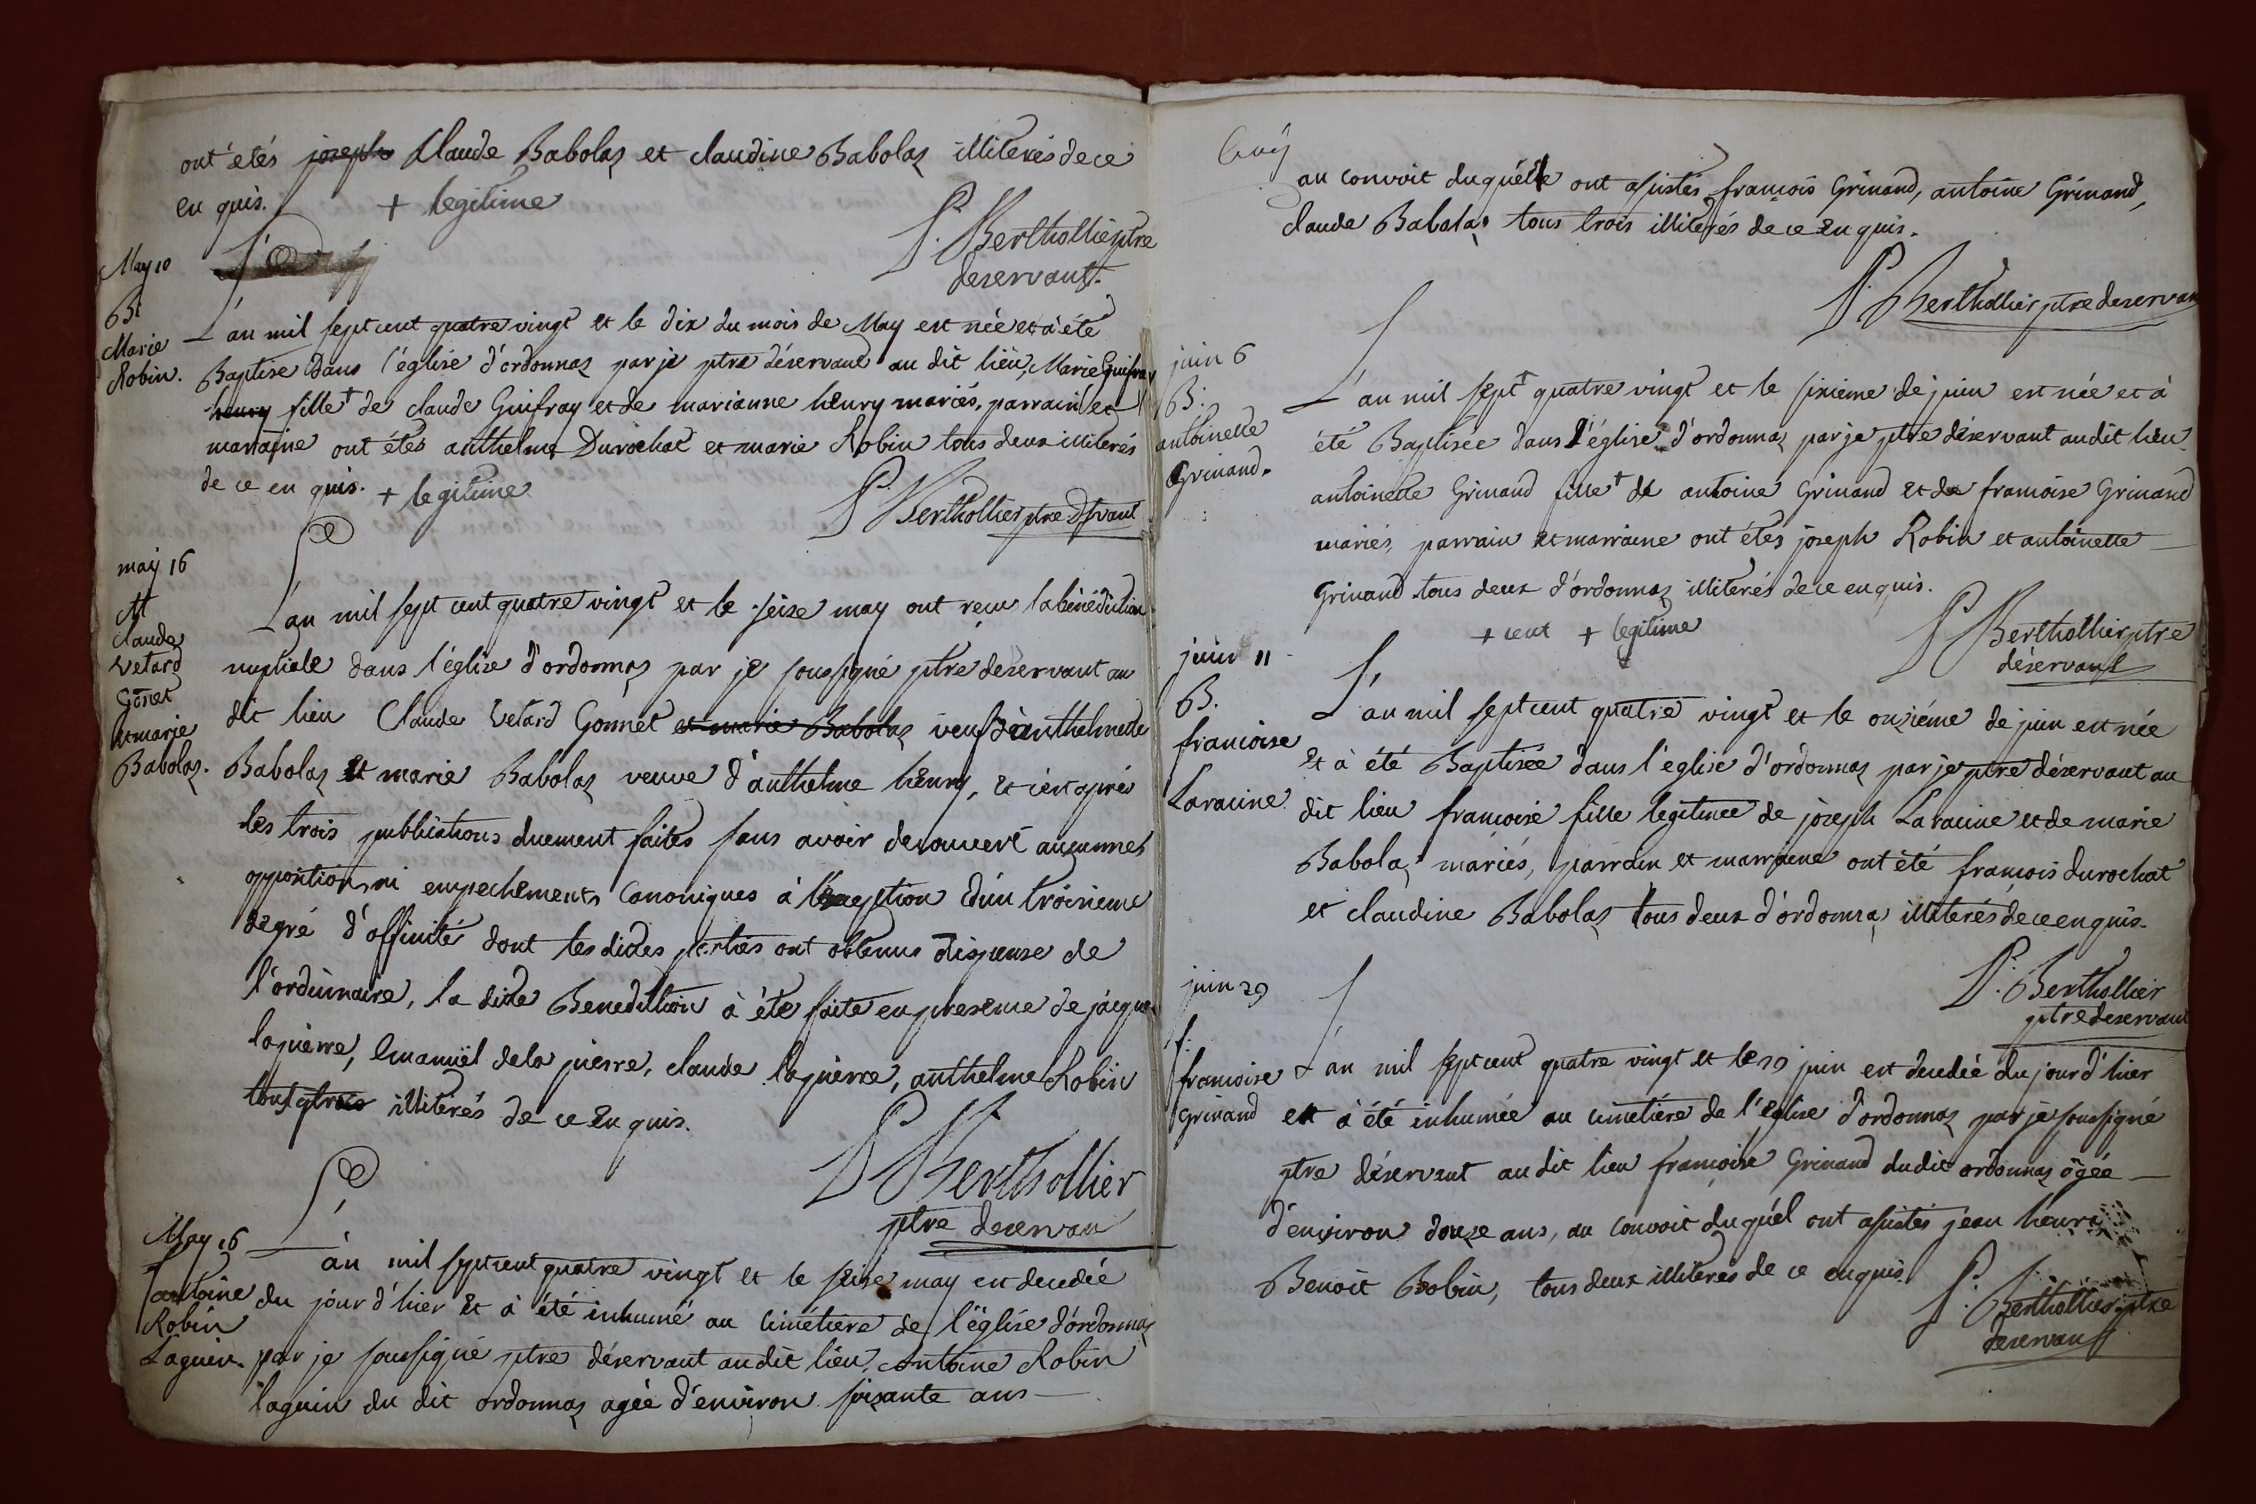 ont étés joseph Claude Babolaz et claudine Babolaz illiterés de ce
en quis. + legitime
P. Berthollier ptre
deservant.
May 10
Bt
Marie
Robin.
L'an mil sept cent quatre vingt et le dix du mois de May est née et à été
Baptise dans l'église d'ordonnaz par je ptre déservant au dit lieu, Marie Guifray
henry fille + de claude Guifray et de marianne henry mariés, parrain et
marraine ont étés anthelme Durochat et marie Robin tous deux illiterés
de ce en quis. + legitime
P. Berthollier ptre Dsvant
may 16
M
Claude
Vetard
Gonet
et marie
Babolaz.
L'an mil sept cent quatre vingt et le seize may ont reçu la bénédiction
nuptiale dans l'église d'ordonnaz par je soussigné ptre deservant au
dit lieu Claude Vetard Gonnet et marie Babolaz veuf d'anthelmette
Babolaz et marie Babolaz veuve d'anthelme henry, et c'est après
les trois publications duement faites sans avoir decouvert aucunnes
opposition ni empechements Canoniques à l'exception d'un troisieme
degré d'affinité dont les dittes parties ont obtenus dispense de
l'ordinnaire, la ditte Benediction à été faite en presence de jacque
lapierre, Emanuël de la pierre, claude lapierre, anthelme Robin
tous illiterés de ce en quis.
P Berthollier
ptre deservan
May 16
antoine
Robin
Laguin.
L'an mil sept cent quatre vingt et le seize may est decedée
du jour d'hier et à été inhumé au cimétiere de l'église d'ordonnaz
par je soussigné ptre déservant au dit lieu, Antoine Robin
laguin du dit ordonnaz agée d'environ soixante ans
au convoit duquel ont assistés francois Grinand, antoine Grinand,
claude Babolaz tous trois illiterés de ce en quis.
P. Berthollier ptre deservan
juin 6
B.
antoinette
Grinand.
L'an mil sept + quatre vingt et le sixieme de juin est née et à
été Baptisée dans l'église d'ordonnaz par je ptre déservant au dit lieu
antoinette Grinand fille + de antoine Grinand et de francoise Grinand
mariés, parrain et marraine ont étés joseph Robin et antoinette
Grinand tous deux d'ordonnaz illiterés de ce en quis.
+ cent + legitime
P Berthollier ptre
déservant
juin 11
B.
francoise
Laracine
L'an mil sept cent quatre vingt et le onziéme de juin est née
et à été Baptisée dans l'église d'ordonnaz par je ptre déservant au
dit lieu francoise fille legitime de joseph Laracine et de marie
Babolaz mariés, parrain et marraine ont été francois durochat
et claudine Babolaz tous deux d'ordonnaz illiterés de ce en quis.
P. Berthollier
ptre deservant
juin 29
f.
francoise
Grinand
L'an mil sept cent quatre vingt et le 29 juin est decedée du jour d'hier
et à été inhumée au cimetiére de l'église d'ordonnaz par je soussigné
ptre déservant au dit lieu francoise Grinand du dit ordonnaz agée
d'environ douze ans, au convoit duquel ont assistés jean henri
Benoit Robin, tous deux illiterés de ce en quis.
P. Berthollier ptre
deservant